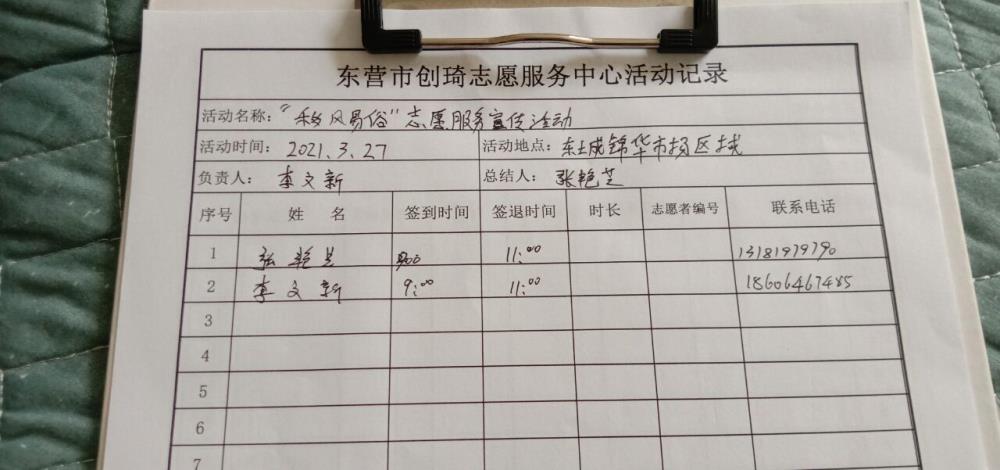 东营市创琦志愿服务中心活动记录
活动名称：“移风易俗”志愿服务宣传活动
活动时间：2021.3.27 活动地点：东城锦华市场区域
负责人：李文新 总结人：张艳芝
序号 姓名 签到时间 签退时间 时长 志愿者编号 联系电话
1 张艳芝 11:00
2 李文新 9:00 11:00 18606467485
3
4
5
6
7